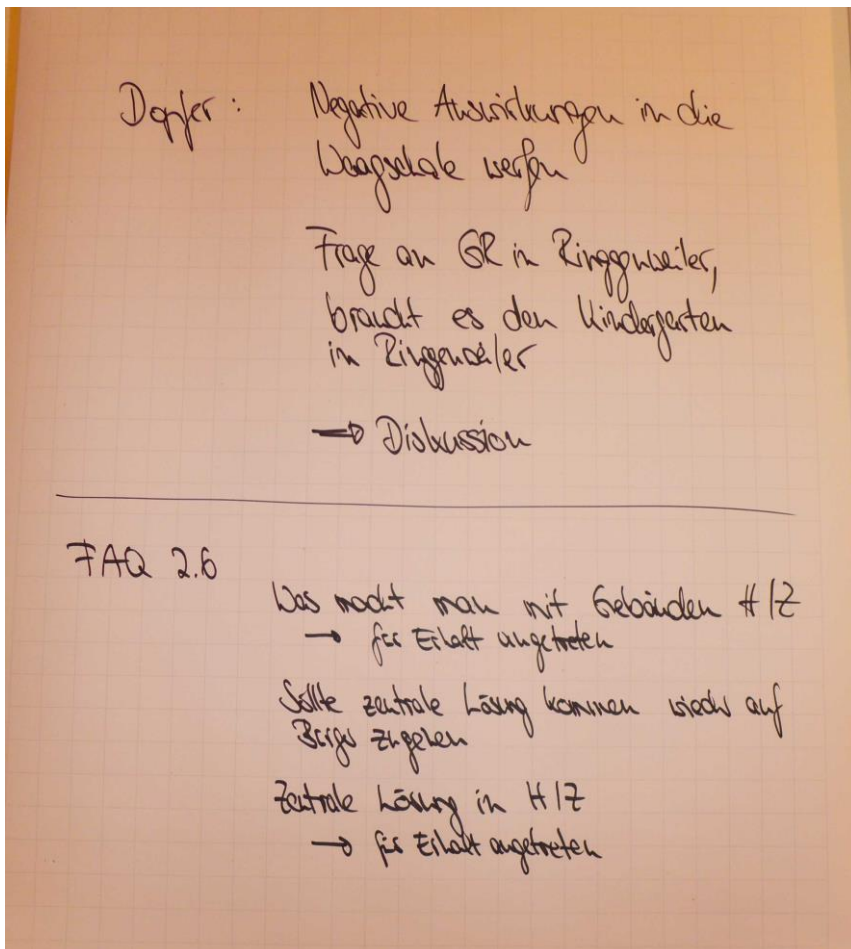 Dopfer: Negative Auswirkungen in die
Waagschale werfen
Frage an GR in Ringgenweiler,
braucht es den Kindergarten
in Ringgenweiler
→ Diskussion
FAQ 2.6
Was macht man mit Gebäuden H/Z
→ für Erhalt angetreten
Sollte zentrale Lösung kommen wieder auf
Bürger zugehen
Zentrale Lösung in H/Z
→ für Erhalt angetreten